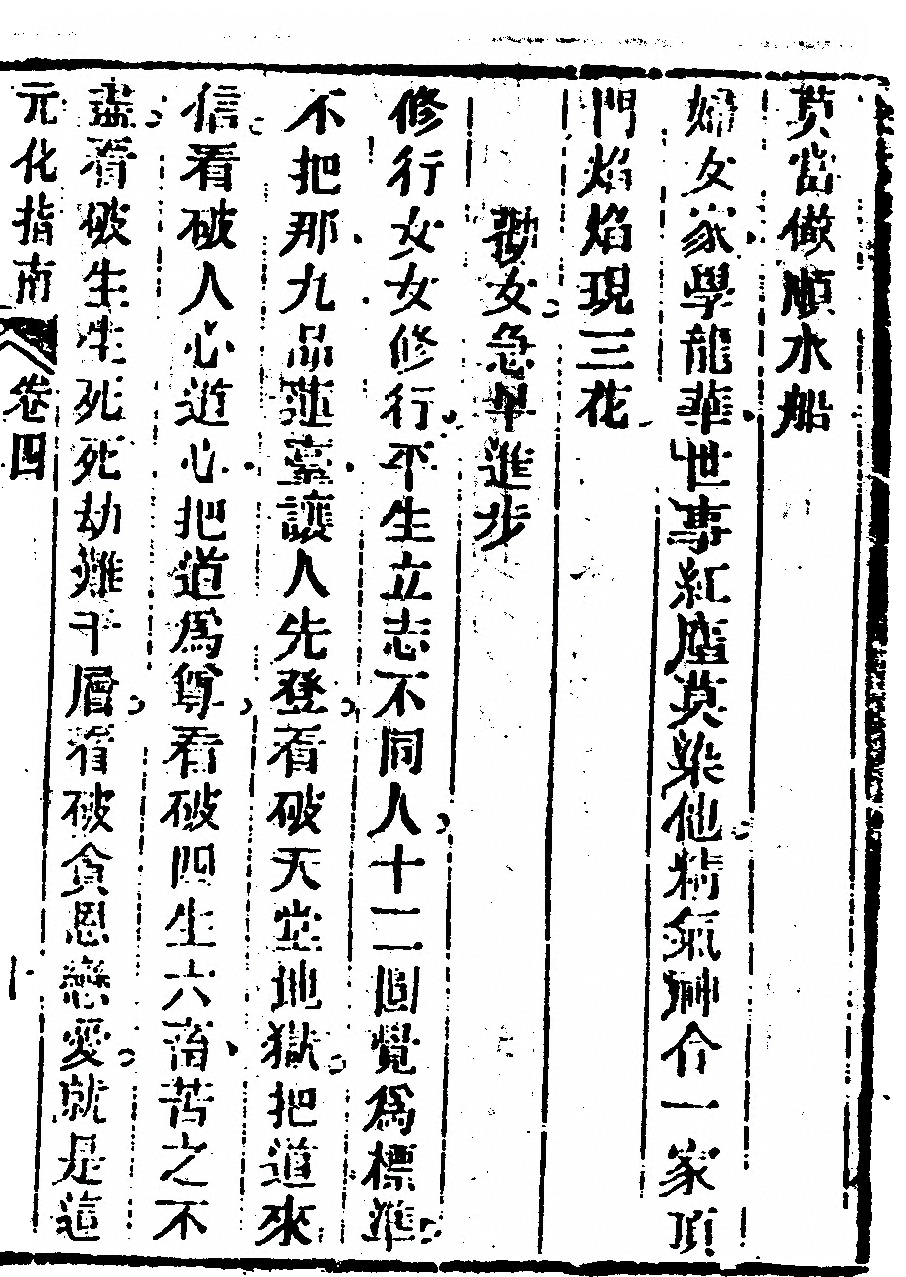 莫當做順水船
婦女家學龍華世事紅塵莫染他精氣神合一家頂
門焰焰現三花
勸女急早進步
修行女女修行平生立志不同人十二圓覺爲標準
不把那九品蓮臺讓人先登看破天堂地獄把道來
信看破人心道心把道爲尊看破四生六畜苦之不
盡看破生生死死劫難千層看破貪恩戀愛就是這
元化指南 卷四 十